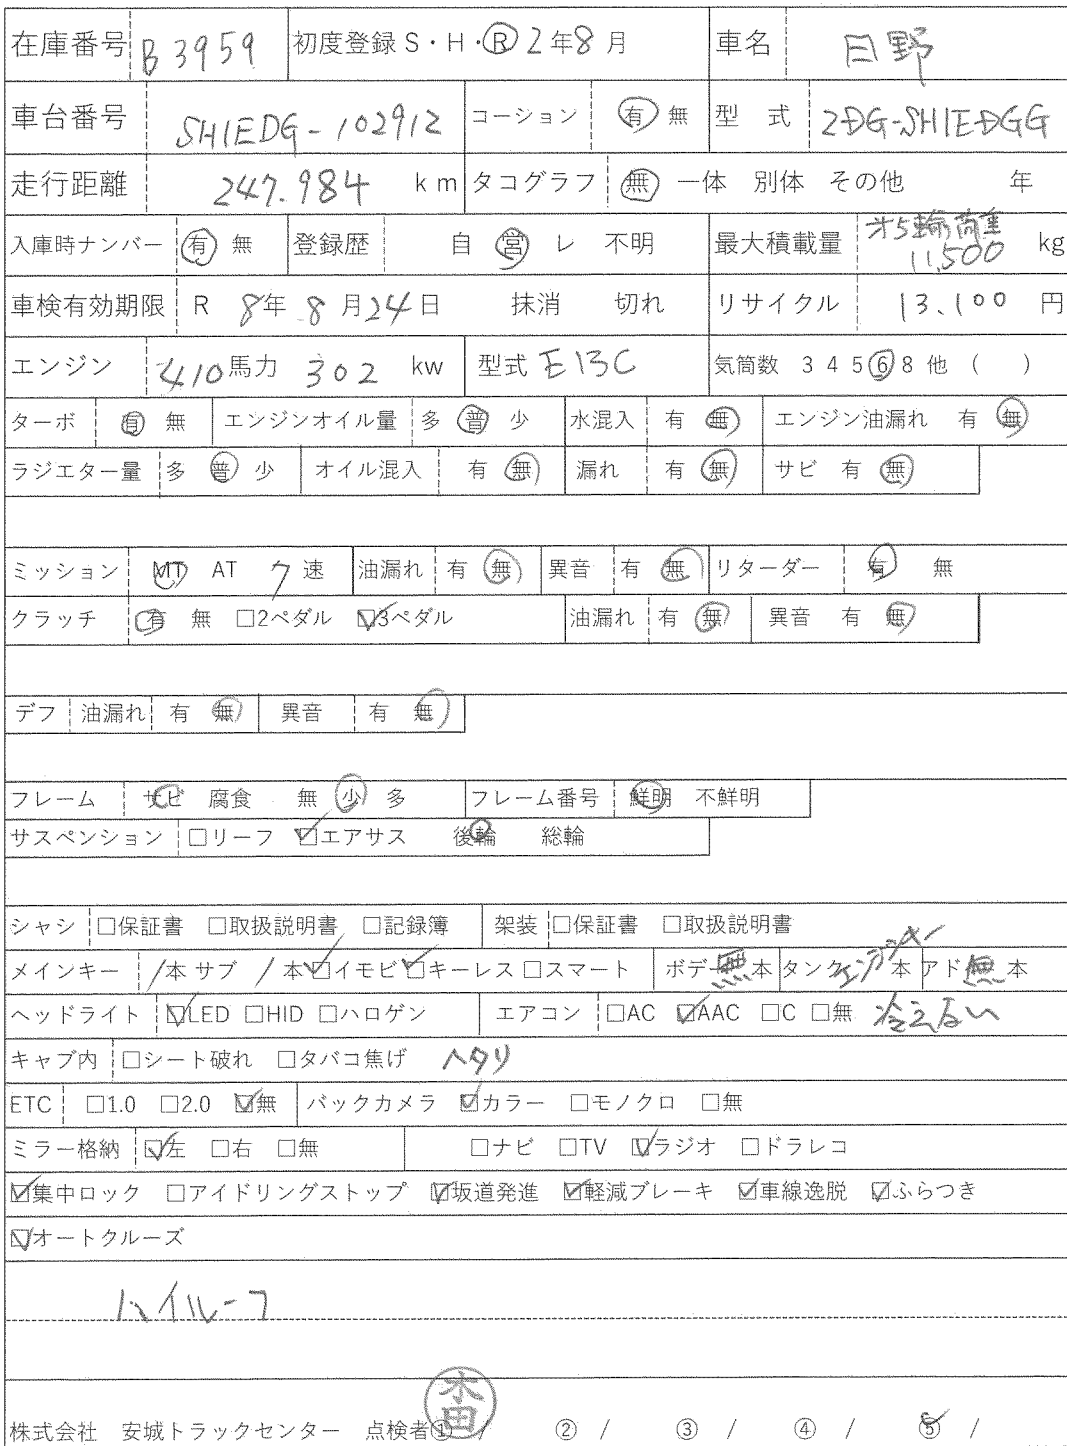 在庫番号 B3959 初度登録 S・H・R 2年8月 車名 日野
車台番号 SH1EDG-102912 コーション 有 無 型式 2DG-SH1EDGG
走行距離 247.984 km タコグラフ 無 一体 別体 その他 年
入庫時ナンバー 有 無 登録歴 自 営 レ 不明 最大積載量 オ5輪荷重 11,500 kg
車検有効期限 R 8年 8月24日 抹消 切れ リサイクル 13.100 円
エンジン 410馬力 302 kw 型式 E13C 気筒数 3 4 5 6 8 他 ( )
ターボ 有 無 エンジンオイル量 多 普 少 水混入 有 無 エンジン油漏れ 有 無
ラジエター量 多 普 少 オイル混入 有 無 漏れ 有 無 サビ 有 無
ミッション MT AT 7 速 油漏れ 有 無 異音 有 無 リターダー 有 無
クラッチ 有 無 □2ペダル ☑3ペダル 油漏れ 有 無 異音 有 無
デフ 油漏れ 有 無 異音 有 無
フレーム サビ 腐食 無 少 多 フレーム番号 鮮明 不鮮明
サスペンション □リーフ ☑エアサス 後輪 総輪
シャシ □保証書 □取扱説明書 □記録簿 架装 □保証書 □取扱説明書
メインキー 1本 サブ 1本 ☑イモビ ☑キーレス □スマート ボデー 無 本 タンク エンジンキー 本 アド 無 本
ヘッドライト ☑LED □HID □ハロゲン エアコン □AC ☑AAC □C □無 冷えない
キャブ内 □シート破れ □タバコ焦げ ヘタリ
ETC □1.0 □2.0 ☑無 バックカメラ ☑カラー □モノクロ □無
ミラー格納 ☑左 □右 □無 □ナビ □TV ☑ラジオ □ドラレコ
☑集中ロック □アイドリングストップ ☑坂道発進 ☑軽減ブレーキ ☑車線逸脱 ☑ふらつき
☑オートクルーズ
ハイルーフ
株式会社 安城トラックセンター 点検者① / ② / ③ / ④ / ⑤ /